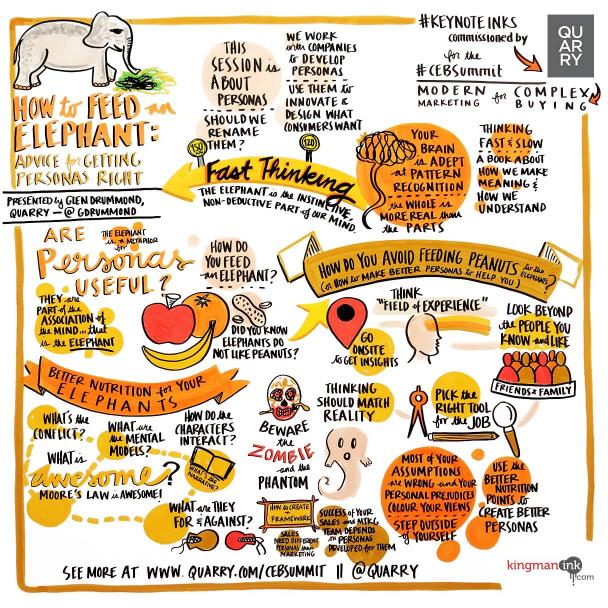 #KEYNOTEINKS
commissioned by
for the
#CEBSummit
MODERN
MARKETING for COMPLEX
BUYING
QU
AR
RY
HOW to FEED an
ELEPHANT:
ADVICE for GETTING
PERSONAS RIGHT
PRESENTED by GLEN DRUMMOND,
QUARRY - @GDRUMMOND
THIS
SESSION is
ABOUT
PERSONAS
SHOULD WE
RENAME
THEM?
WE WORK
with COMPANIES
to DEVELOP
PERSONAS
USE THEM to
INNOVATE &
DESIGN WHAT
CONSUMERS WANT
150
120
Fast Thinking
THE ELEPHANT is the INSTINCTIVE,
NON-DEDUCTIVE PART of OUR MIND.
YOUR
BRAIN
is ADEPT
at PATTERN
RECOGNITION
the WHOLE is
MORE REAL than
the PARTS
THINKING
FAST & SLOW
A BOOK ABOUT
HOW WE MAKE
MEANING &
HOW WE
UNDERSTAND
ARE
THE ELEPHANT
is a METAPHOR
for
Personas
USEFUL?
THEY are
PART of the
ASSOCIATION of
the MIND... that
is the ELEPHANT
HOW DO
YOU FEED
an ELEPHANT?
DID YOU KNOW
ELEPHANTS DO
NOT LIKE PEANUTS?
HOW DO YOU AVOID FEEDING PEANUTS to the ELEPHANT?
(or HOW to MAKE BETTER PERSONAS to HELP YOU)
GO
ONSITE
to GET INSIGHTS
THINK
"FIELD of EXPERIENCE"
LOOK BEYOND
the PEOPLE YOU
KNOW and LIKE
FRIENDS & FAMILY
BETTER NUTRITION for YOUR
ELEPHANTS
WHAT'S the
CONFLICT?
WHAT are
the MENTAL
MODELS?
HOW DO the
CHARACTERS
INTERACT?
WHAT is
awesome?
MOORE'S LAW is AWESOME!
WHAT'S the
NARRATIVE?
WHAT are THEY
FOR & AGAINST?
BEWARE
the
ZOMBIE
and the
PHANTOM
THINKING
SHOULD MATCH
REALITY
PICK the
RIGHT TOOL
for the JOB
HOW to CREATE
a FRAMEWORK
SALES
NEED DIFFERENT
PERSONAS than
MARKETING
SUCCESS of YOUR
SALES and MKTG
TEAM DEPENDS
on PERSONAS
DEVELOPED for THEM
MOST of YOUR
ASSUMPTIONS
are WRONG and YOUR
PERSONAL PREJUDICES
COLOUR YOUR VIEWS
STEP OUTSIDE
of YOURSELF
USE the
BETTER
NUTRITION
POINTS to
CREATE BETTER
PERSONAS
SEE MORE AT WWW.QUARRY.COM/CEBSUMMIT || @QUARRY
kingmanink
.com